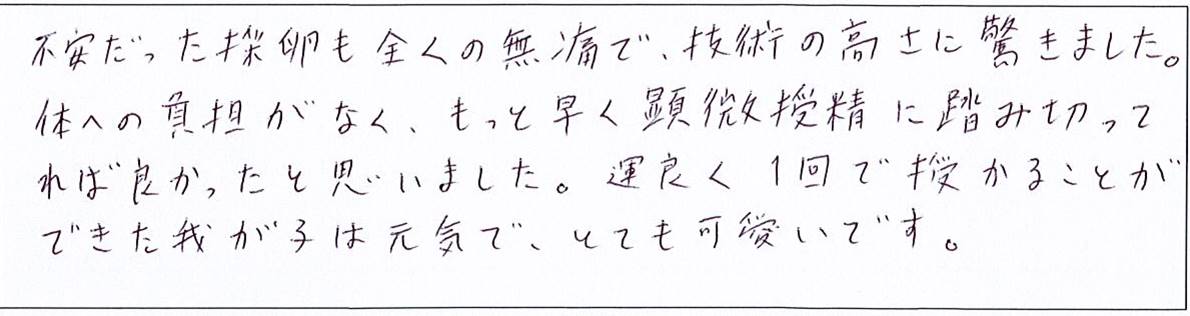 不安だった採卵も全くの無痛で、技術の高さに驚きました。
体への負担がなく、もっと早く顕微授精に踏み切って
れば良かったと思いました。運良く1回で授かることが
できた我が子は元気で、とても可愛いです。